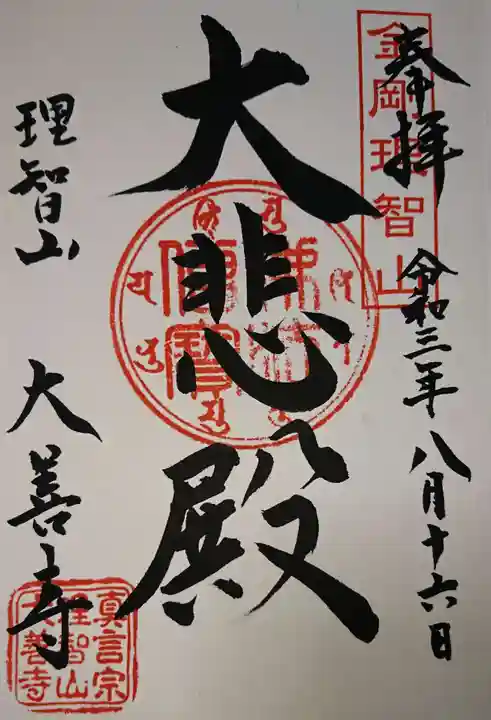 奉拝
令和三年八月十六日
金剛理智山
大悲殿
佛法僧寶
理智山
大善寺
真言宗
理智山
大善寺